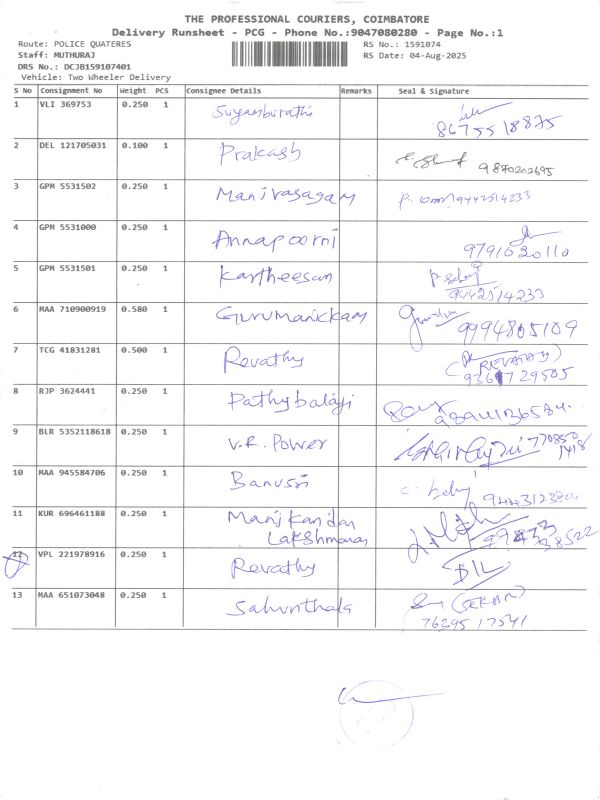 THE PROFESSIONAL COURIERS, COIMBATORE
Delivery Runsheet - PCG - Phone No.:9047080280 - Page No.:1
Route: POLICE QUATERES RS No.: 1591074
Staff: MUTHURAJ RS Date: 04-Aug-2025
DRS No.: DCJB159107401
Vehicle: Two Wheeler Delivery
S No Consignment No Weight PCS Consignee Details Remarks Seal & Signature
1 VLI 369753 0.250 1 Suyamburathi
8675518875
2 DEL 121705031 0.100 1 Prakash 9870202695
3 GPM 5531502 0.250 1 Manivasagam 9442514233
4 GPM 5531000 0.250 1 Annapoorni
9791620110
5 GPM 5531501 0.250 1 Kartheesan
9442514233
6 MAA 710900919 0.580 1 Gurumanickam 9994805109
7 TCG 41831281 0.500 1 Revathy (REVATHY)
8 RJP 3624441 0.250 1 Pathybalaji
9 BLR 5352118618 0.250 1 V.R. Power
10 MAA 945584706 0.250 1 Banusri
11 KUR 696461188 0.250 1 Manikandan
Lakshmanan
12 VPL 221978916 0.250 1 Revathy
13 MAA 651073048 0.250 1 Sahunthala (SEKAR)
7639517541